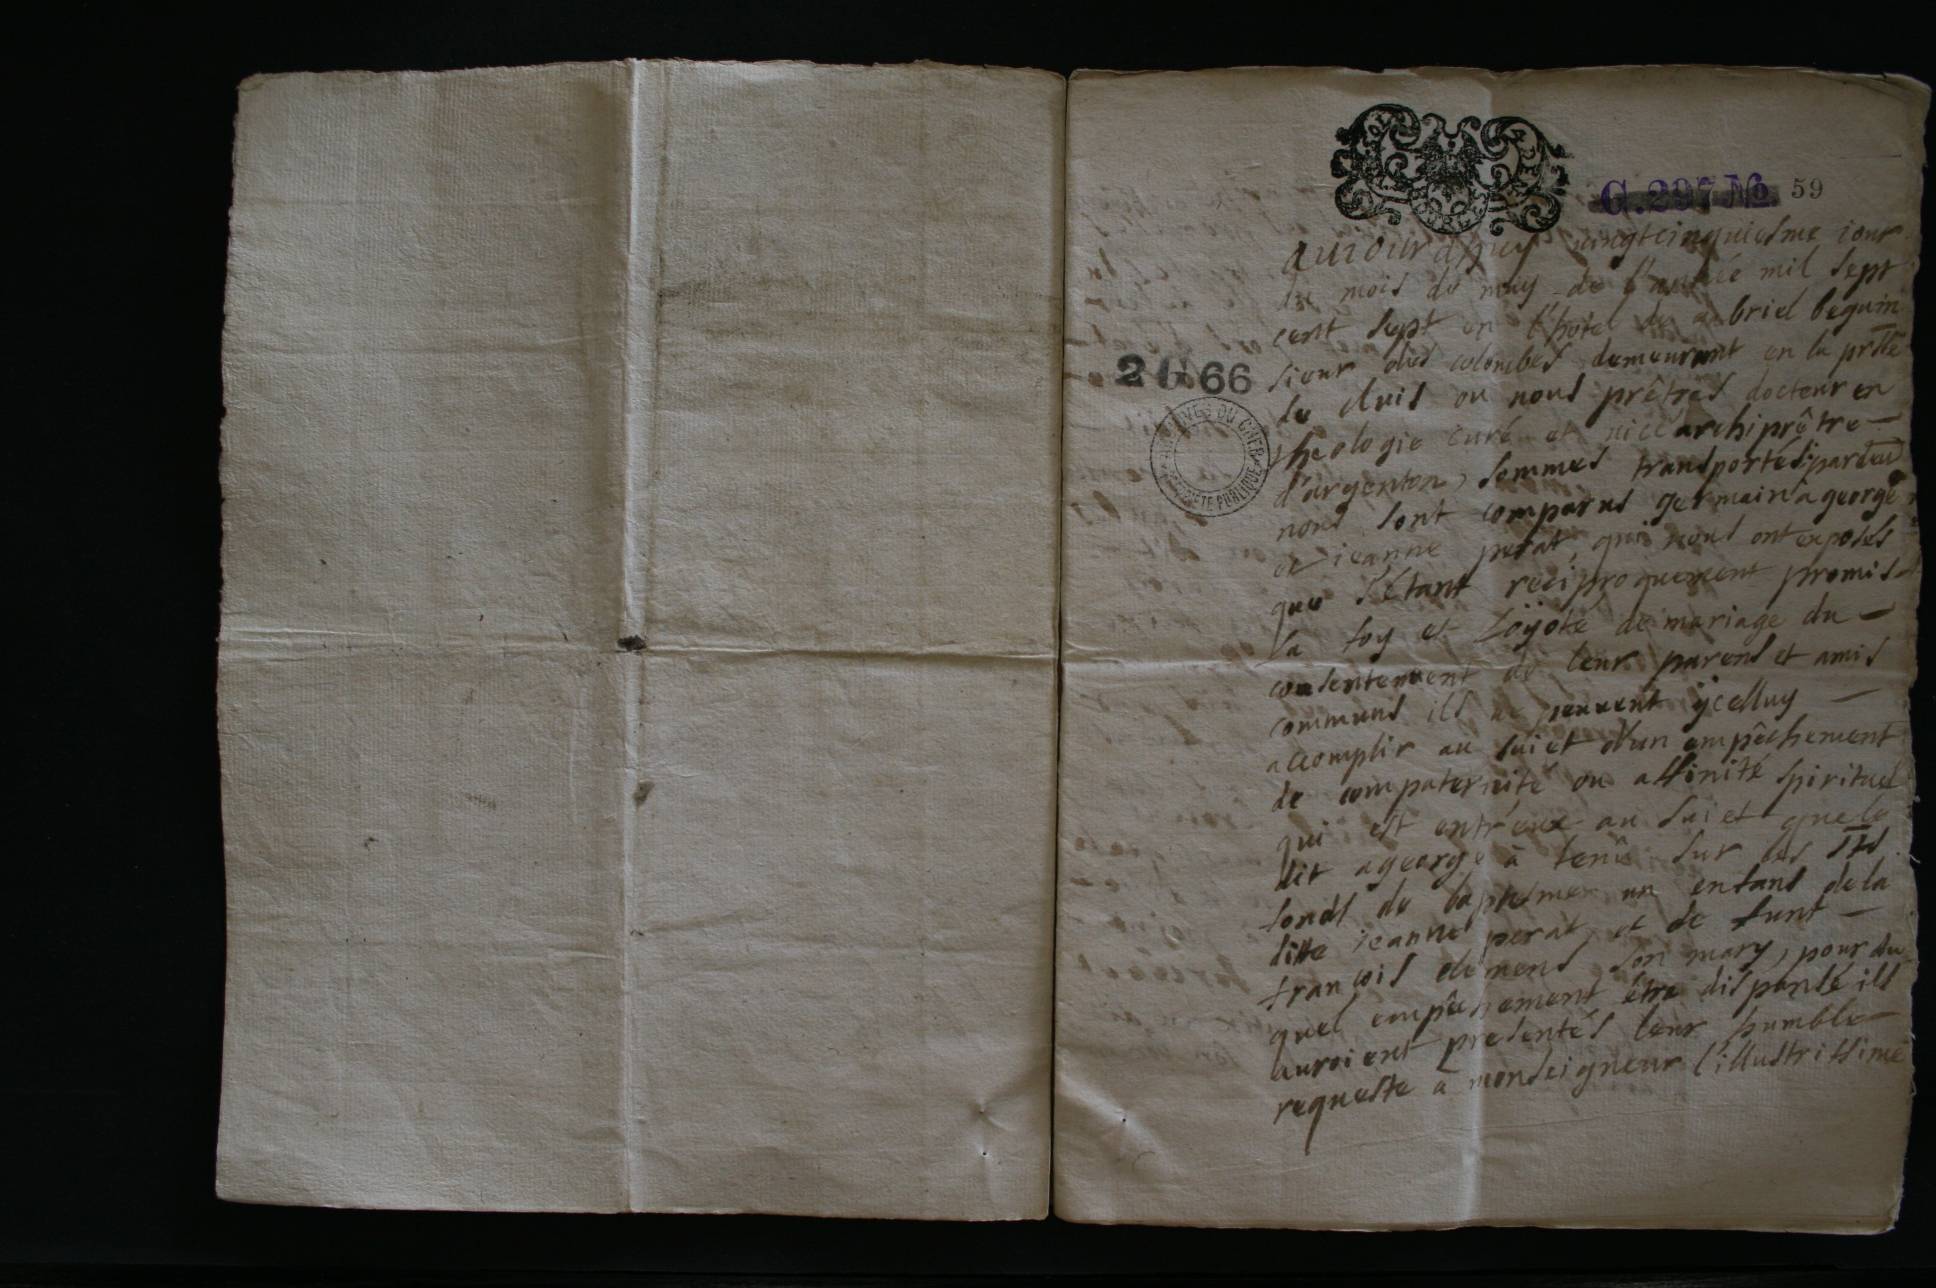 G.297 No 59
auiourdhuy vingtcinquiesme iour
du mois de may de l'année mil sept
cent sept en l'hôtel de gabriel beguin
sieur des colombes demeurant en la prsse
de cluis ou nous prêtres docteur en
theologie curé et vice archiprêtre
d'argenton, sommes transportés pardeu
nous sont comparus germain ageorge
et ieanne perat, qui nous ont exposés
que s'étant reciproquement promis
la foy et loÿoté de mariage du
consentement de leur parens et amis
communs ils ne peuvent ÿcelluy
accomplir au suiet d'un empêchement
de compaternité ou affinité spirituel
qui est entr'eux au suiet que le
dit ageorge à tenû sur les sts
fonds de baptesmes un enfans de la
ditte ieanne perat, et de funt
françois clemens son mary, pour du
quel empêchement être dispensé ils
auroient presentés leur humble
requeste a monseigneur l'illustrissime
2 G 66
ARCHIVES DU CHER
PROPRIÉTÉ PUBLIQUE